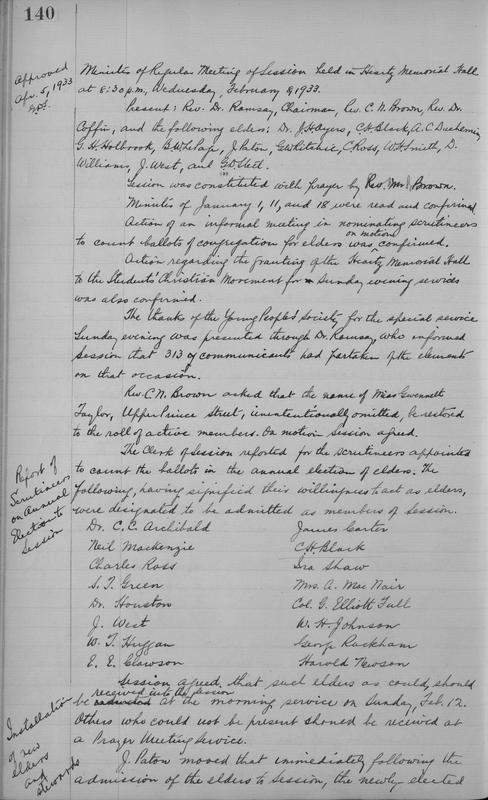 140
Approved
Apr. 5, 1933
Minutes of Regular Meeting of Session held in Heartz Memorial Hall
at 8:30 p.m., Wednesday, February 8, 1933.
Present: Rev. Dr. Ramsay, Chairman, Rev. C. N. Brown, Rev. Dr.
Coffin, and the following elders: Dr. J. H. Ayers, C. H. Black, A. C. Duchemin,
G. H. Holbrook, G. W. LePage, J. Paton, C. Ross, W. H. Smith, D.
Williams, J. West, and
Session was constituted with prayer by Rev. Mr. Brown.
Minutes of January 1, 11, and 18 were read and confirmed.
Action of an informal meeting in nominating scrutineers
on motion
to count ballots of congregation for elders was confirmed.
Action regarding the granting of the Heartz Memorial Hall
to the Students' Christian Movement for Sunday evening services
was also confirmed.
The thanks of the Young People's Society for the special service
Sunday evening was presented through Dr. Ramsay, who informed
Session that 313 communicants had partaken of the elements
on that occasion.
Rev. C. N. Brown asked that the name of Miss Gwennett
Taylor, Upper Prince Street, unintentionally omitted, be restored
to the roll of active members. On motion Session agreed.
Report of
Scrutineers
on Annual
Election to
Session
The Clerk of Session reported for the scrutineers appointed
to count the ballots in the annual election of elders. The
following, having signified their willingness to act as elders,
were designated to be admitted as members of Session.
Dr. C. C. Archibald James Carter
Neil Mackenzie C. H. Black
Charles Ross Ira Shaw
S. T. Green Mrs. A. MacNair
Dr. Houston Col. G. Elliott Full
J. West W. H. Johnson
W. T. Huggan George Rackham
E. E. Clawson Harold Newson
Session agreed that such elders as could, should
received into the session
be admitted at the morning service on Sunday, Feb. 12.
Others who could not be present should be received at
a Prayer Meeting Service.
Installation
of new
elders
and
stewards
J. Paton moved that immediately following the
admission of the elders to Session, the newly elected